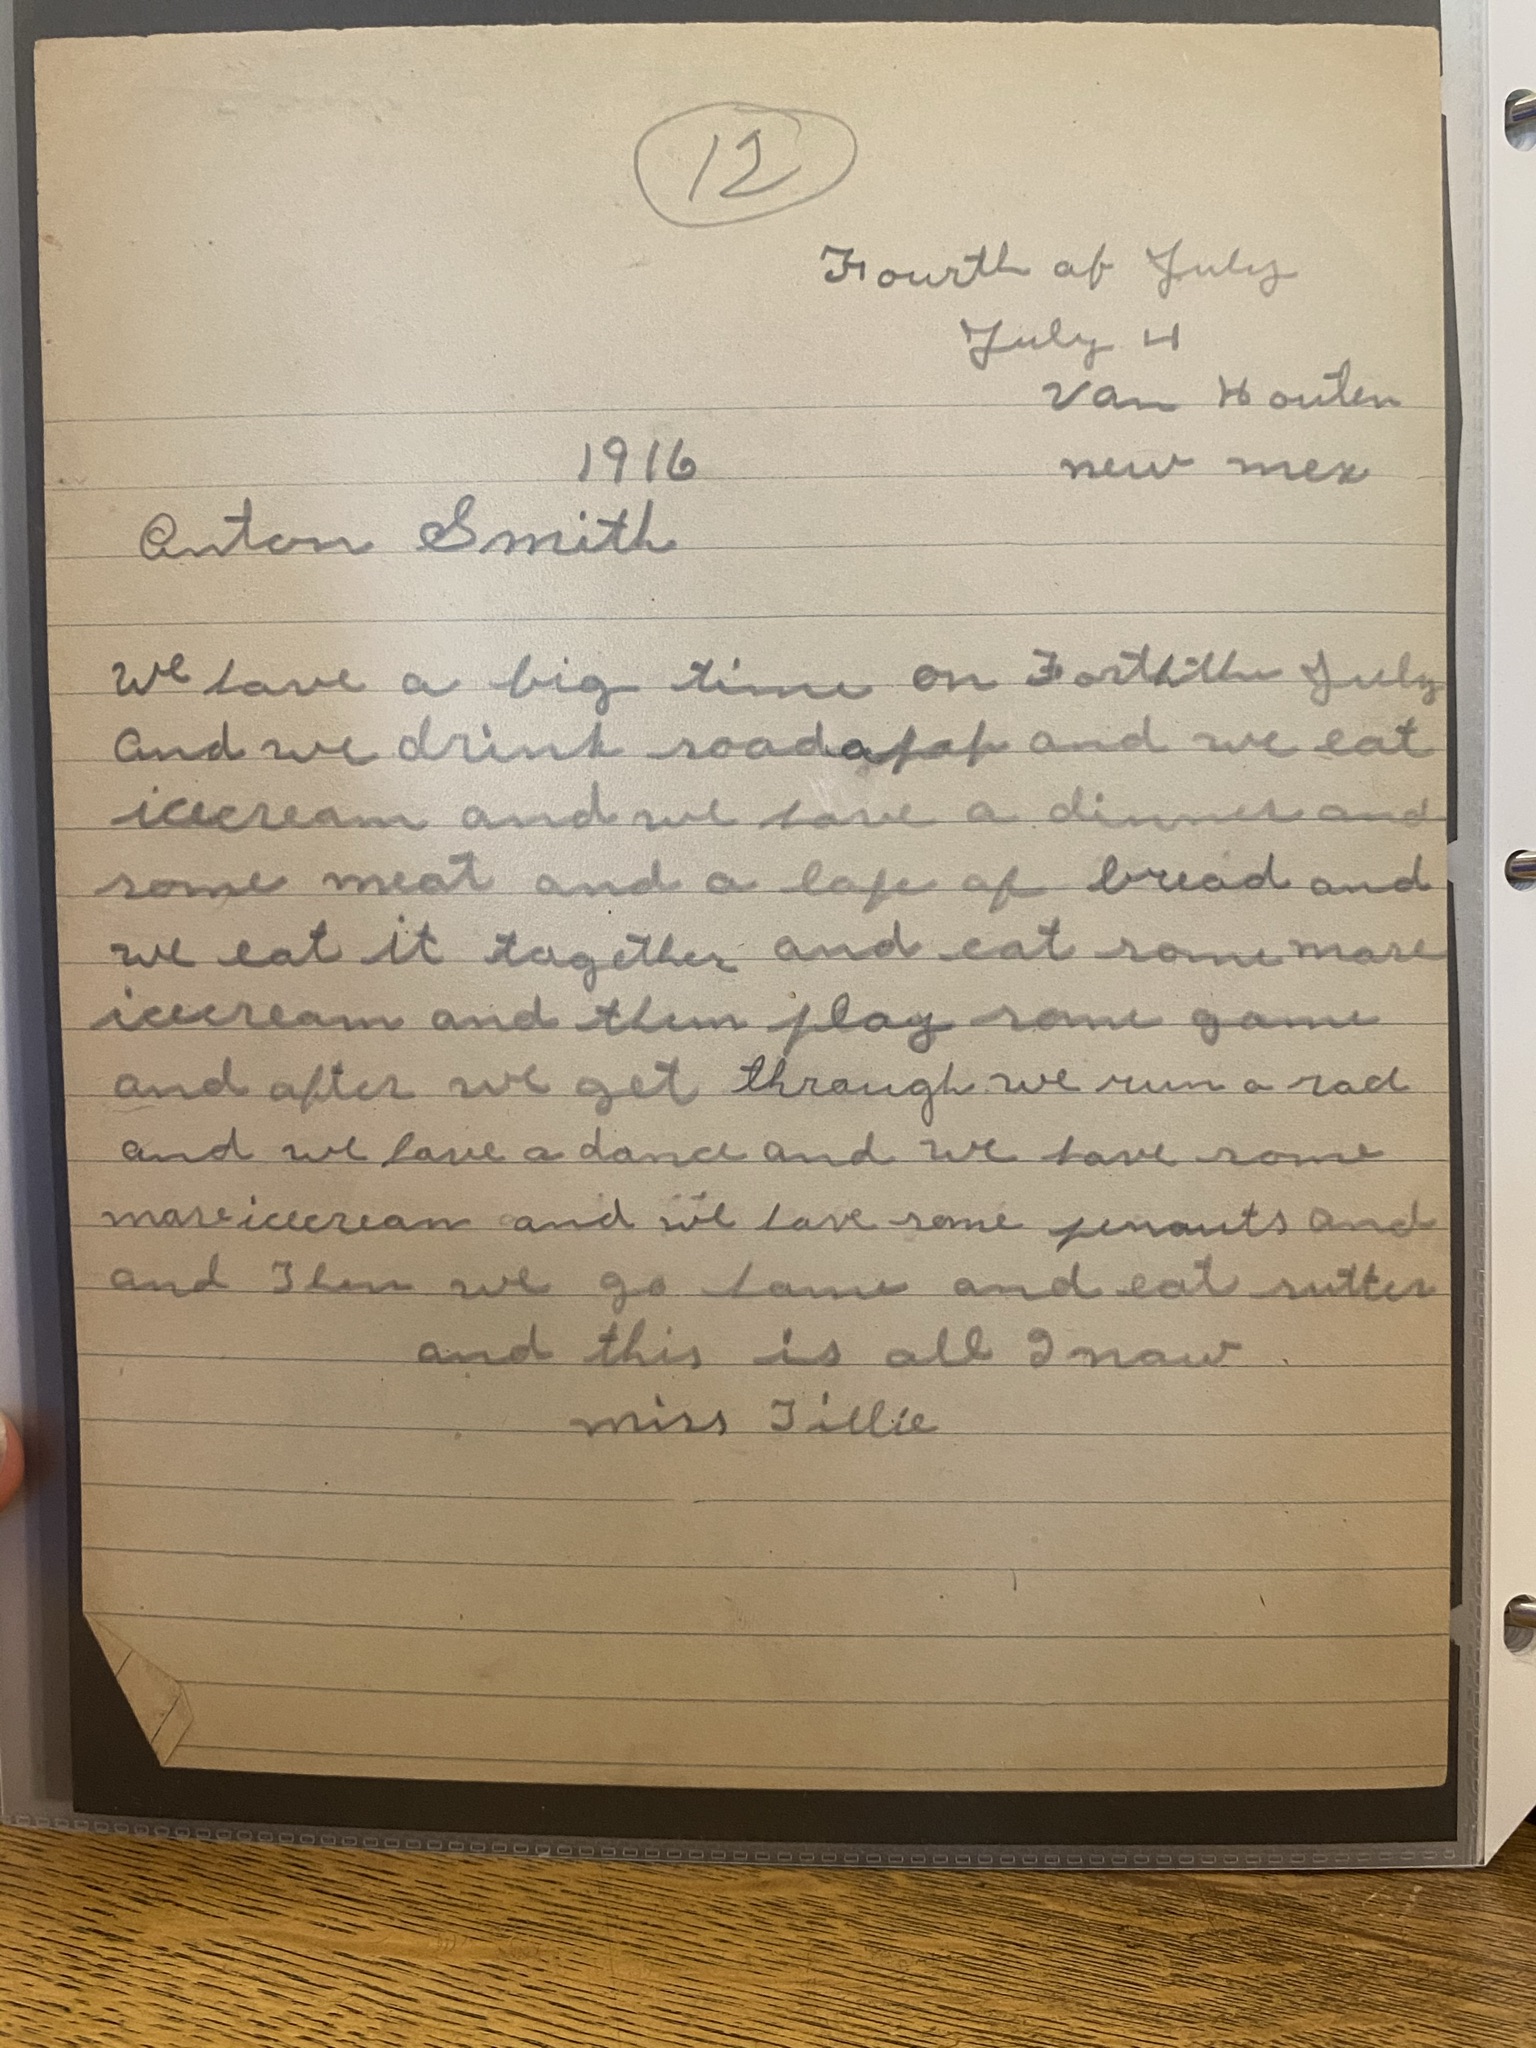 12
Fourth of July
July 4
Van Houten
1916
new mex
Anton Smith
We have a big time on Forththe July
and we drink soadapop and we eat
icecream and we have a dinner and
some meat and a lofe of bread and
we eat it together and eat some more
icecream and then play some game
and after we get through we run a
and we have a dance and we have some
more icecream and we have some penauts and
and Then we go home and eat sutter
and this is all I now
miss Tillie